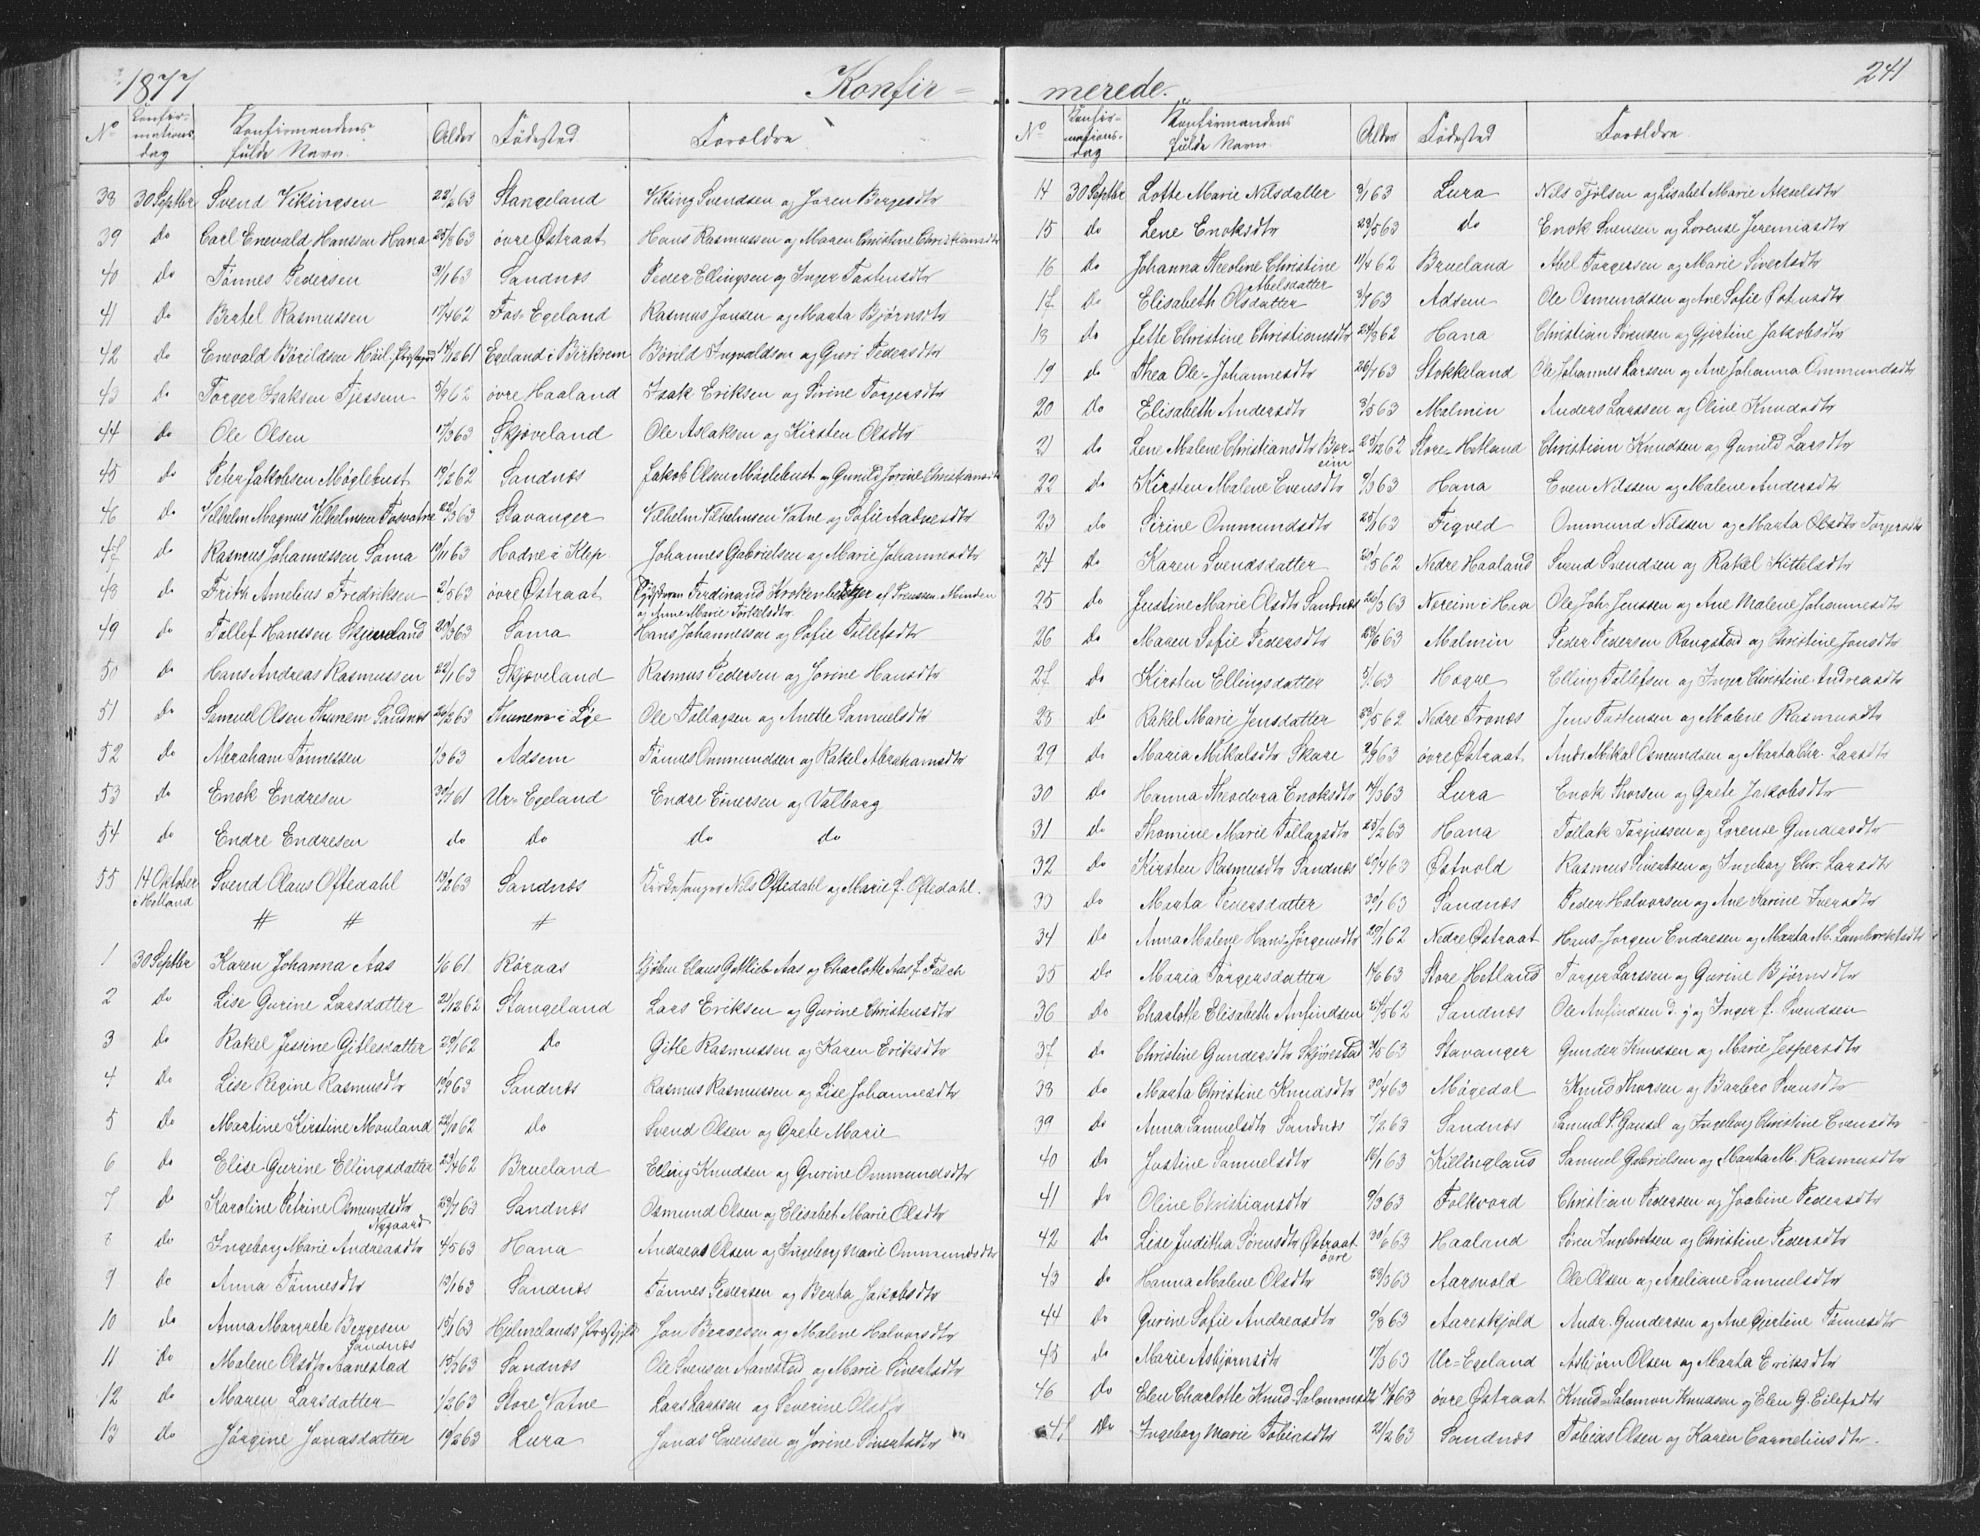 1877 Konfir=
No Konfir-mations dag Konfirmandens fulde Navn. Alder Fødested Forældre
38 30 Septbr Svend Vikingsen 63 Stangeland Viking Svendsen og Joren Borgesdtr
39 do Carl Enevald Hanssen Hana 63 øvre Østraat Hans Rasmussen og Maren Christine Christiansdtr
40 do Tønnes Pedersen 63 Sandnæs Peder Ellingsen og Inger Tostensdtr
41 do Bertel Rasmussen 17/4 62 Fos-Egeland Rasmus Jonsen og Marta Bjørnsdtr
42 do Enevald Børildsen 61 Egeland i Birkrem Børild Ingvaldsen og Guri Pedersdtr
43 do Torger Isaksen Tjessem 62 øvre Haaland Isak Eriksen og Sirine Torgersdtr
44 do Ole Olsen 17/3 63 Skjæveland Ole Aslaksen og Kirsten Olsdtr
45 do Peter Jakobsen Møglebust 62 Sandnæs Jakob Olsen Møglebust og Gunild Jorine Christiansdtr
46 do Vilhelm Magnus Vilhelmsen Fosvatne 63 Stavanger Vilhelm Vilhelmsen Vatne og Sofie Aadnesdtr
47 do Rasmus Johannessen Soma 63 Hodne i Klep. Johannes Gabrielsen og Marie Johannesdtr
48 do Frith Amelius Fredriksen 2/5 63 øvre Østraat Ferdinand Krokenberger af Preussen Minden
og Anne Marie Torkelsdtr
49 do Tollef Hanssen Skjæveland 63 Soma Hans Johannessen og Sofie Tollefsdtr
50 do Hans Andreas Rasmussen 22/1 63 Skjæveland Rasmus Pedersen og Jorine Hansdtr
51 do Samuel Olsen Thunem Sandnæs 63 Thunem i Lye Ole Tollagsen og Anette Samuelsdtr
52 do Abraham Tønnessen 1/3 63 Adsem Tønnes Ommundsen og Rakel Abrahamsdtr
53 do Enok Endresen 61 Ur-Egeland Endre Einersen og Valborg
54 do Endre Endresen do do do do
55 14 Oktober i Høiland Svend Olaus Oftedahl 63 Sandnæs Kirkesanger Nils Oftedahl og Marie f. Oftedahl.
# # #
1 30 Septbr Karen Johanna Aas 1/6 61 Røraas Kjøbm. Claus Gottlieb Aas og Charlotte Aas f. Falch
2 do Lise Gurine Larsdatter 62 Stangeland Lars Eriksen og Gurine Christensdtr
3 do Rakel Jessine Gitlesdatter 29/1 62 do Gitle Rasmussen og Karen Eriksdtr
4 do Lise Regine Rasmusdtr 63 Sandnæs Rasmus Rasmussen og Lise Johannesdtr
5 do Martine Kirstine Mauland 22/10 62 do Svend Olsen og Grete Marie
6 do Elise Gurine Ellingsdatter 23/4 62 Brueland Elling Knudsen og Gurine Ommundsdtr
7 do Karoline Petrine Osmundsdtr Nygaard 63 Sandnæs Osmund Olsen og Elisabet Marie Olsdtr
8 do Ingeborg Marie Andreasdtr 4/5 63 Hana Andreas Olsen og Ingeborg Marie Ommundsdtr
9 do Anna Tønnesdtr 63 Sandnæs Tønnes Pedersen og Berta Jakobsdtr
10 do Anna Margrete Bergesen Sandnæs 15/1 63 Hjelmelands Præstgjeld Jon Bergesen og Malene Halvorsdtr
11 do Malene Olsdtr Aanestad 63 Sandnæs Ole Svensen Aanestad og Marie Sivertsdtr
12 do Maren Larsdatter 1/2 63 Store Vatne Lars Larssen og Severine Olsdtr
13 do Jørgine Jonasdatter 19/2 63 Lura Jonas Evensen og Jorine Sivertsdtr
241
merede.
No Konfir-mations-dag Konfirmandens fulde Navn Alder Fødested Forældre
14 30 Septbr Lotte Marie Nilsdatter 3/1 63 Lura Nils Tjølsen og Lisabet Marie Akselsdtr
15 do Lene Enoksdtr 29/5 63 do Enok Svensen og Lorense Jeremiasdtr
16 do Johanna Theoline Christine Abelsdatter 11/4 62 Brueland Abel Torgersen og Marie Sivertsdtr
17 do Elisabeth Olsdatter 63 Adsem Ole Osmundsen og Ane Sofie Østensdtr
18 do Jette Christine Christiansdtr 62 Hana Christian Sørensen og Gjertine Jakobsdtr
19 do Thea Ole-Johannesdtr 63 Stokkeland Ole Johannes Larssen og Ane Johanna Ommundsdtr
20 do Elisabeth Andersdtr 3/5 63 Malmin Anders Larssen og Oline Knudsdtr
21 do Lene Malene Christiansdtr 62 Store-Hetland Christian Knudsen og Gunild Larsdtr
22 do Kirsten Malene Evensdtr 63 Hana Even Nilssen og Malene Andersdtr
23 do Sirine Ommundsdtr 63 Figved Ommund Nilssen og Marta Olsdtr
24 do Karen Svendsdatter 20/5 62 Nedre Haaland Svend Svendsen og Rakel Kittelsdtr
25 do Justine Marie Olsdtr Sandnæs 63 Nereim i Haa Ole Joh. Jenssen og Ane Malene Johannesdtr
26 do Maren Sofie Pedersdtr 63 Malmin Peder Pedersen Rongstad og Christine Jonsdtr
27 do Kirsten Ellingsdatter 63 Hogne Elling Tollefsen og Inger Christine Andreasdtr
28 do Rakel Marie Jensdatter 62 Nedre Tronæs Jens Tostensen og Malene Rasmusdtr
29 do Maria Mikalsdtr Skare 63 øvre Østraat Andr. Mikal Osmundsen og Marta Chr. Larsdtr
30 do Hanna Theodora Enoksdtr 63 Lura Enok Thorsen og Grete Jakobsdtr
31 do Thomine Marie Tollagsdtr 23/2 63 Hana Tollak Torjussen og Lorense Gundersdtr
32 do Kirsten Rasmusdtr Sandnæs 63 Østvold Rasmus Sivertsen og Ingeborg Chr. Larsdtr
33 do Marta Pedersdatter 30/1 63 Sandnæs Peder Halvorsen og Ane Karine Iversdtr
34 do Anna Malene Hans-Jørgensdtr 62 Nedre Østraat Hans-Jørgen Endresen og Marta M. Lambrechtsdtr
35 do Maria Torgersdatter 63 Store Hetland Torger Larssen og Gurine Bjørnsdtr
36 do Charlotte Elisabeth Anfindsen 62 Sandnæs Ole Anfindsen d. y. og Inger f. Svendsen
37 do Christine Gundersdtr Skjørestad 63 Stavanger Gunder Knudsen og Marie Jespersdtr
38 do Marta Christine Knudsdtr 30/4 63 Møgedal Knud Thorsen og Barbro Svensdtr
39 do Anna Samuelsdtr Sandnæs 7/2 63 Sandnæs Samuel P. Gausel og Ingeborg Christine Evensdtr
40 do Justine Samuelsdtr 63 Killingland Samuel Gabrielsen og Marta M. Rasmusdtr
41 do Oline Christiansdtr 9/3 63 Folkvord Christian Pedersen og Jaabine Pedersdtr
42 do Lise Juditha Sørensdtr Østraat øvre 30/6 63 Haaland Søren Ingebretsen og Christine Pedersdtr
43 do Hanna Malene Olsdtr 63 Aarsvold Ole Olsen og Areliane Samuelsdtr
44 do Gurine Sofie Andreasdtr 63 Aareskjold Andr. Gundersen og Ane Gjertine Tønnesdtr
45 do Marie Asbjørnsdtr 17/3 63 Ur-Egeland Asbjørn Olsen og Marta Eriksdtr
46 do Elen Charlotte Knud-Salomonsdtr 63 øvre Østraat Knud-Salomon Knudsen og Elen G. Eilefsdtr
47 do Ingeborg Marie Tobiasdtr 21/2 63 Sandnæs Tobias Olsen og Karen Corneliusdtr.